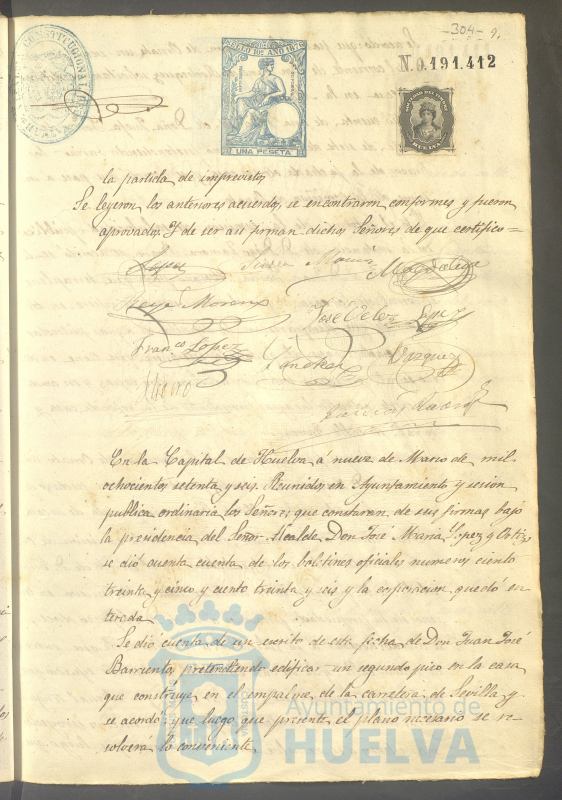 304 9.
SELLO 10º AÑO 1876
UNA PESETA
N.0.191.412
HUELVA
la partida de imprevistos
Se leyeron los anteriores acuerdos, se encontraron conformes y fueron
aprobados. Y de ser asi firman dichos Señores de que certifico=
Lopez
Magdalena
Moreno
José Velez Lopez
Franco Lopez
Sanchez
Vazquez
En la Capital de Huelva á nueve de Marzo de mil
ochocientos setenta y seis. Reunidos en Ayuntamiento y sesion
publica ordinaria los Señores que constaran de sus firmas bajo
la presidencia del Señor Alcalde, Don José Maria Lopez y Ortiz,
se dió cuenta cuenta de los boletines oficiales numeros ciento
treinta y cinco y ciento treinta y seis y la corporacion quedó en
terada
Se dió cuenta de un escrito de esta fecha de Don Juan José
Barriento, pretendiendo edificar un segundo piso en la casa
que construye en el empalme de la carretera de Sevilla y
se acordó que luego que presente el plano necesario se re
solverá lo conveniente
Ayuntamiento de
HUELVA